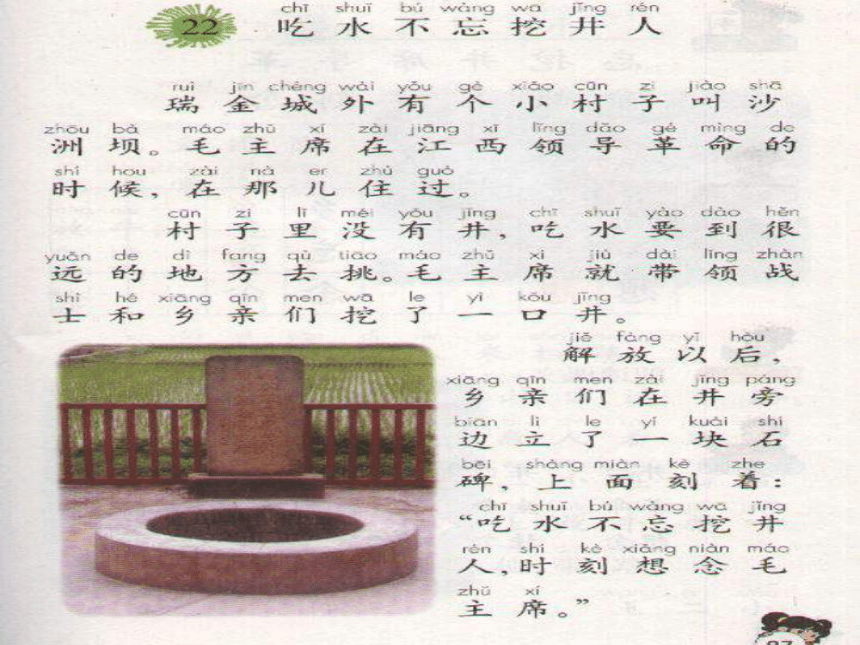 22 chī shuǐ bú wàng wā jǐng rén
吃水不忘挖井人
ruì jīn chéng wài yǒu gè xiǎo cūn zi jiào shā
瑞金城外有个小村子叫沙
zhōu bà máo zhǔ xí zài jiāng xī lǐng dǎo gé mìng de
洲坝。毛主席在江西领导革命的
shí hou zài nà er zhù guò
时候,在那儿住过。
cūn zi lǐ méi yǒu jǐng chī shuǐ yào dào hěn
村子里没有井,吃水要到很
yuǎn de dì fang qù tiāo máo zhǔ xí jiù dài lǐng zhàn
远的地方去挑。毛主席就带领战
shì hé xiāng qīn men wā le yì kǒu jǐng
士和乡亲们挖了一口井。
jiě fàng yǐ hòu
解放以后,
xiāng qīn men zài jǐng páng
乡亲们在井旁
biān lì le yí kuài shí
边立了一块石
bēi shàng miàn kè zhe
碑,上面刻着:
chī shuǐ bú wàng wā jǐng
“吃水不忘挖井
rén shí kè xiǎng niàn máo
人,时刻想念毛
zhǔ xí
主席。”